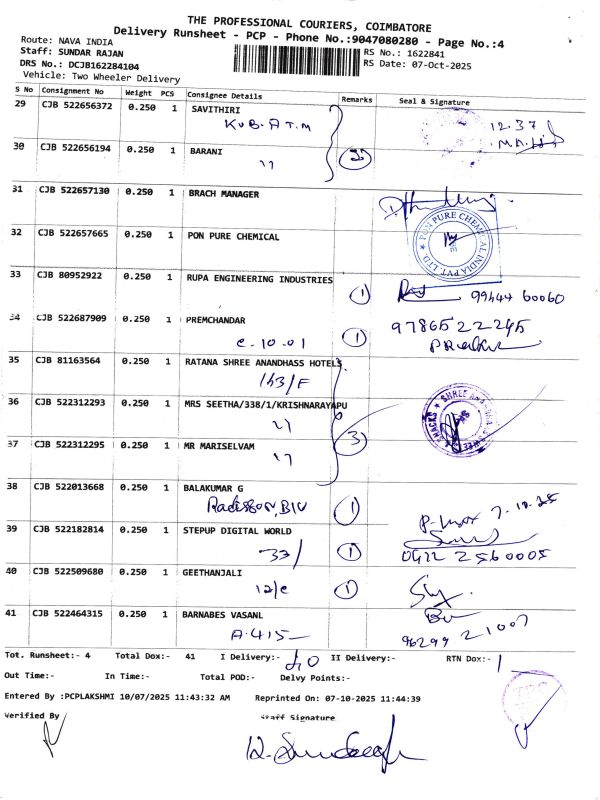 THE PROFESSIONAL COURIERS, COIMBATORE
Delivery Runsheet - PCP - Phone No.:9047080280 - Page No.:4
Route: NAVA INDIA
RS No.: 1622841
Staff: SUNDAR RAJAN
RS Date: 07-Oct-2025
DRS No.: DCJB162284104
Vehicle: Two Wheeler Delivery
S No Consignment No Weight PCS Consignee Details Remarks Seal & Signature
29 CJB 522656372 0.250 1 SAVITHIRI
KUB. ATM 12.37
30 CJB 522656194 0.250 1 BARANI
" 2
31 CJB 522657130 0.250 1 BRACH MANAGER
32 CJB 522657665 0.250 1 PON PURE CHEMICAL
PON PURE CHEMICAL INDIA PVT. LTD.
33 CJB 80952922 0.250 1 RUPA ENGINEERING INDUSTRIES
1 99444 60060
34 CJB 522687909 0.250 1 PREMCHANDAR
C-10.01 1 9786522245
35 CJB 81163564 0.250 1 RATANA SHREE ANANDHASS HOTELS
143/F
36 CJB 522312293 0.250 1 MRS SEETHA/338/1/KRISHNARAYAPU
"
37 CJB 522312295 0.250 1 MR MARISELVAM
" 3
38 CJB 522013668 0.250 1 BALAKUMAR G
Radisson, BLU 1 7.10.25
39 CJB 522182814 0.250 1 STEPUP DIGITAL WORLD
33/ 1 0422 2560005
40 CJB 522509680 0.250 1 GEETHANJALI
12/c 1
41 CJB 522464315 0.250 1 BARNABES VASANL
A-415 96299 21007
Tot. Runsheet:- 4 Total Dox:- 41 I Delivery:- 40 II Delivery:- RTN Dox:- 1
Out Time:- In Time:- Total POD:- Delvy Points:-
Entered By :PCPLAKSHMI 10/07/2025 11:43:32 AM Reprinted On: 07-10-2025 11:44:39
Verified By Staff Signature